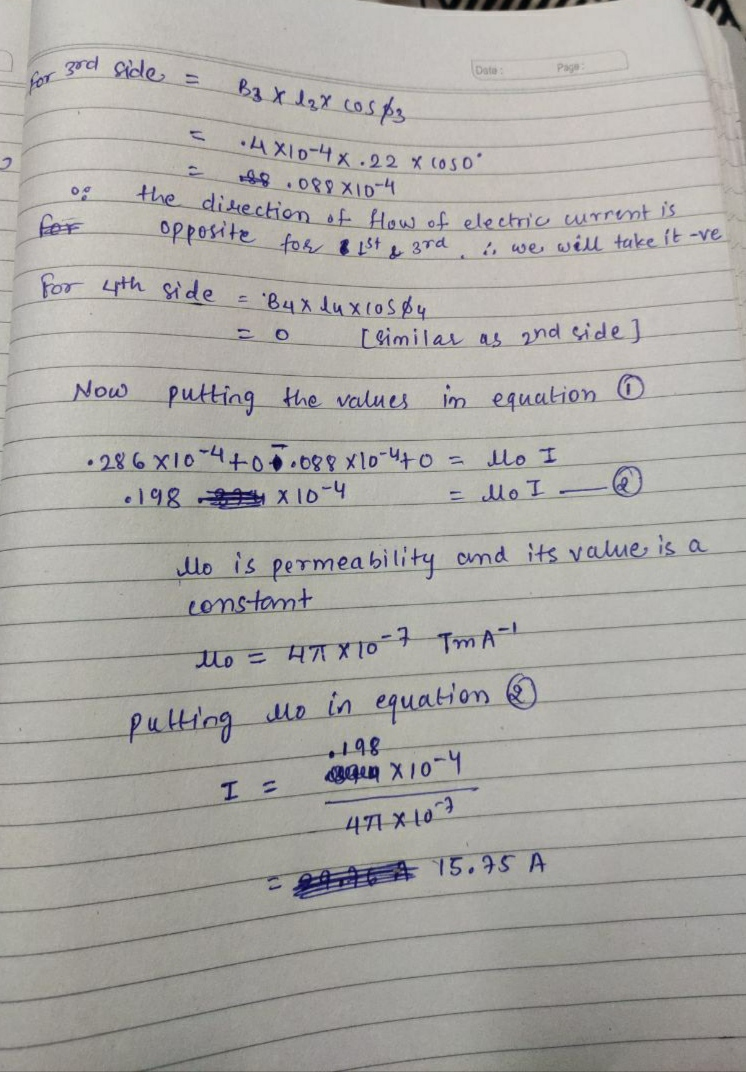 Date: Page:
for 3rd side = B3 x l3 x cos ϕ3
= .4 x 10-4 x .22 x cos 0°
= .088 x 10-4
∵ the direction of flow of electric current is
for opposite for 1st & 3rd. ∴ we will take it -ve
For 4th side = B4 x l4 x cos ϕ4
= 0 [similar as 2nd side]
Now putting the values in equation ①
.286 x 10-4 + 0 - .088 x 10-4 + 0 = μo I
.198 x 10-4 = μo I — ②
μo is permeability and its value is a
constant
μo = 4π x 10-7 TmA-1
putting μo in equation ②
I = .198 x 10-4
4π x 10-7
= 15.75 A